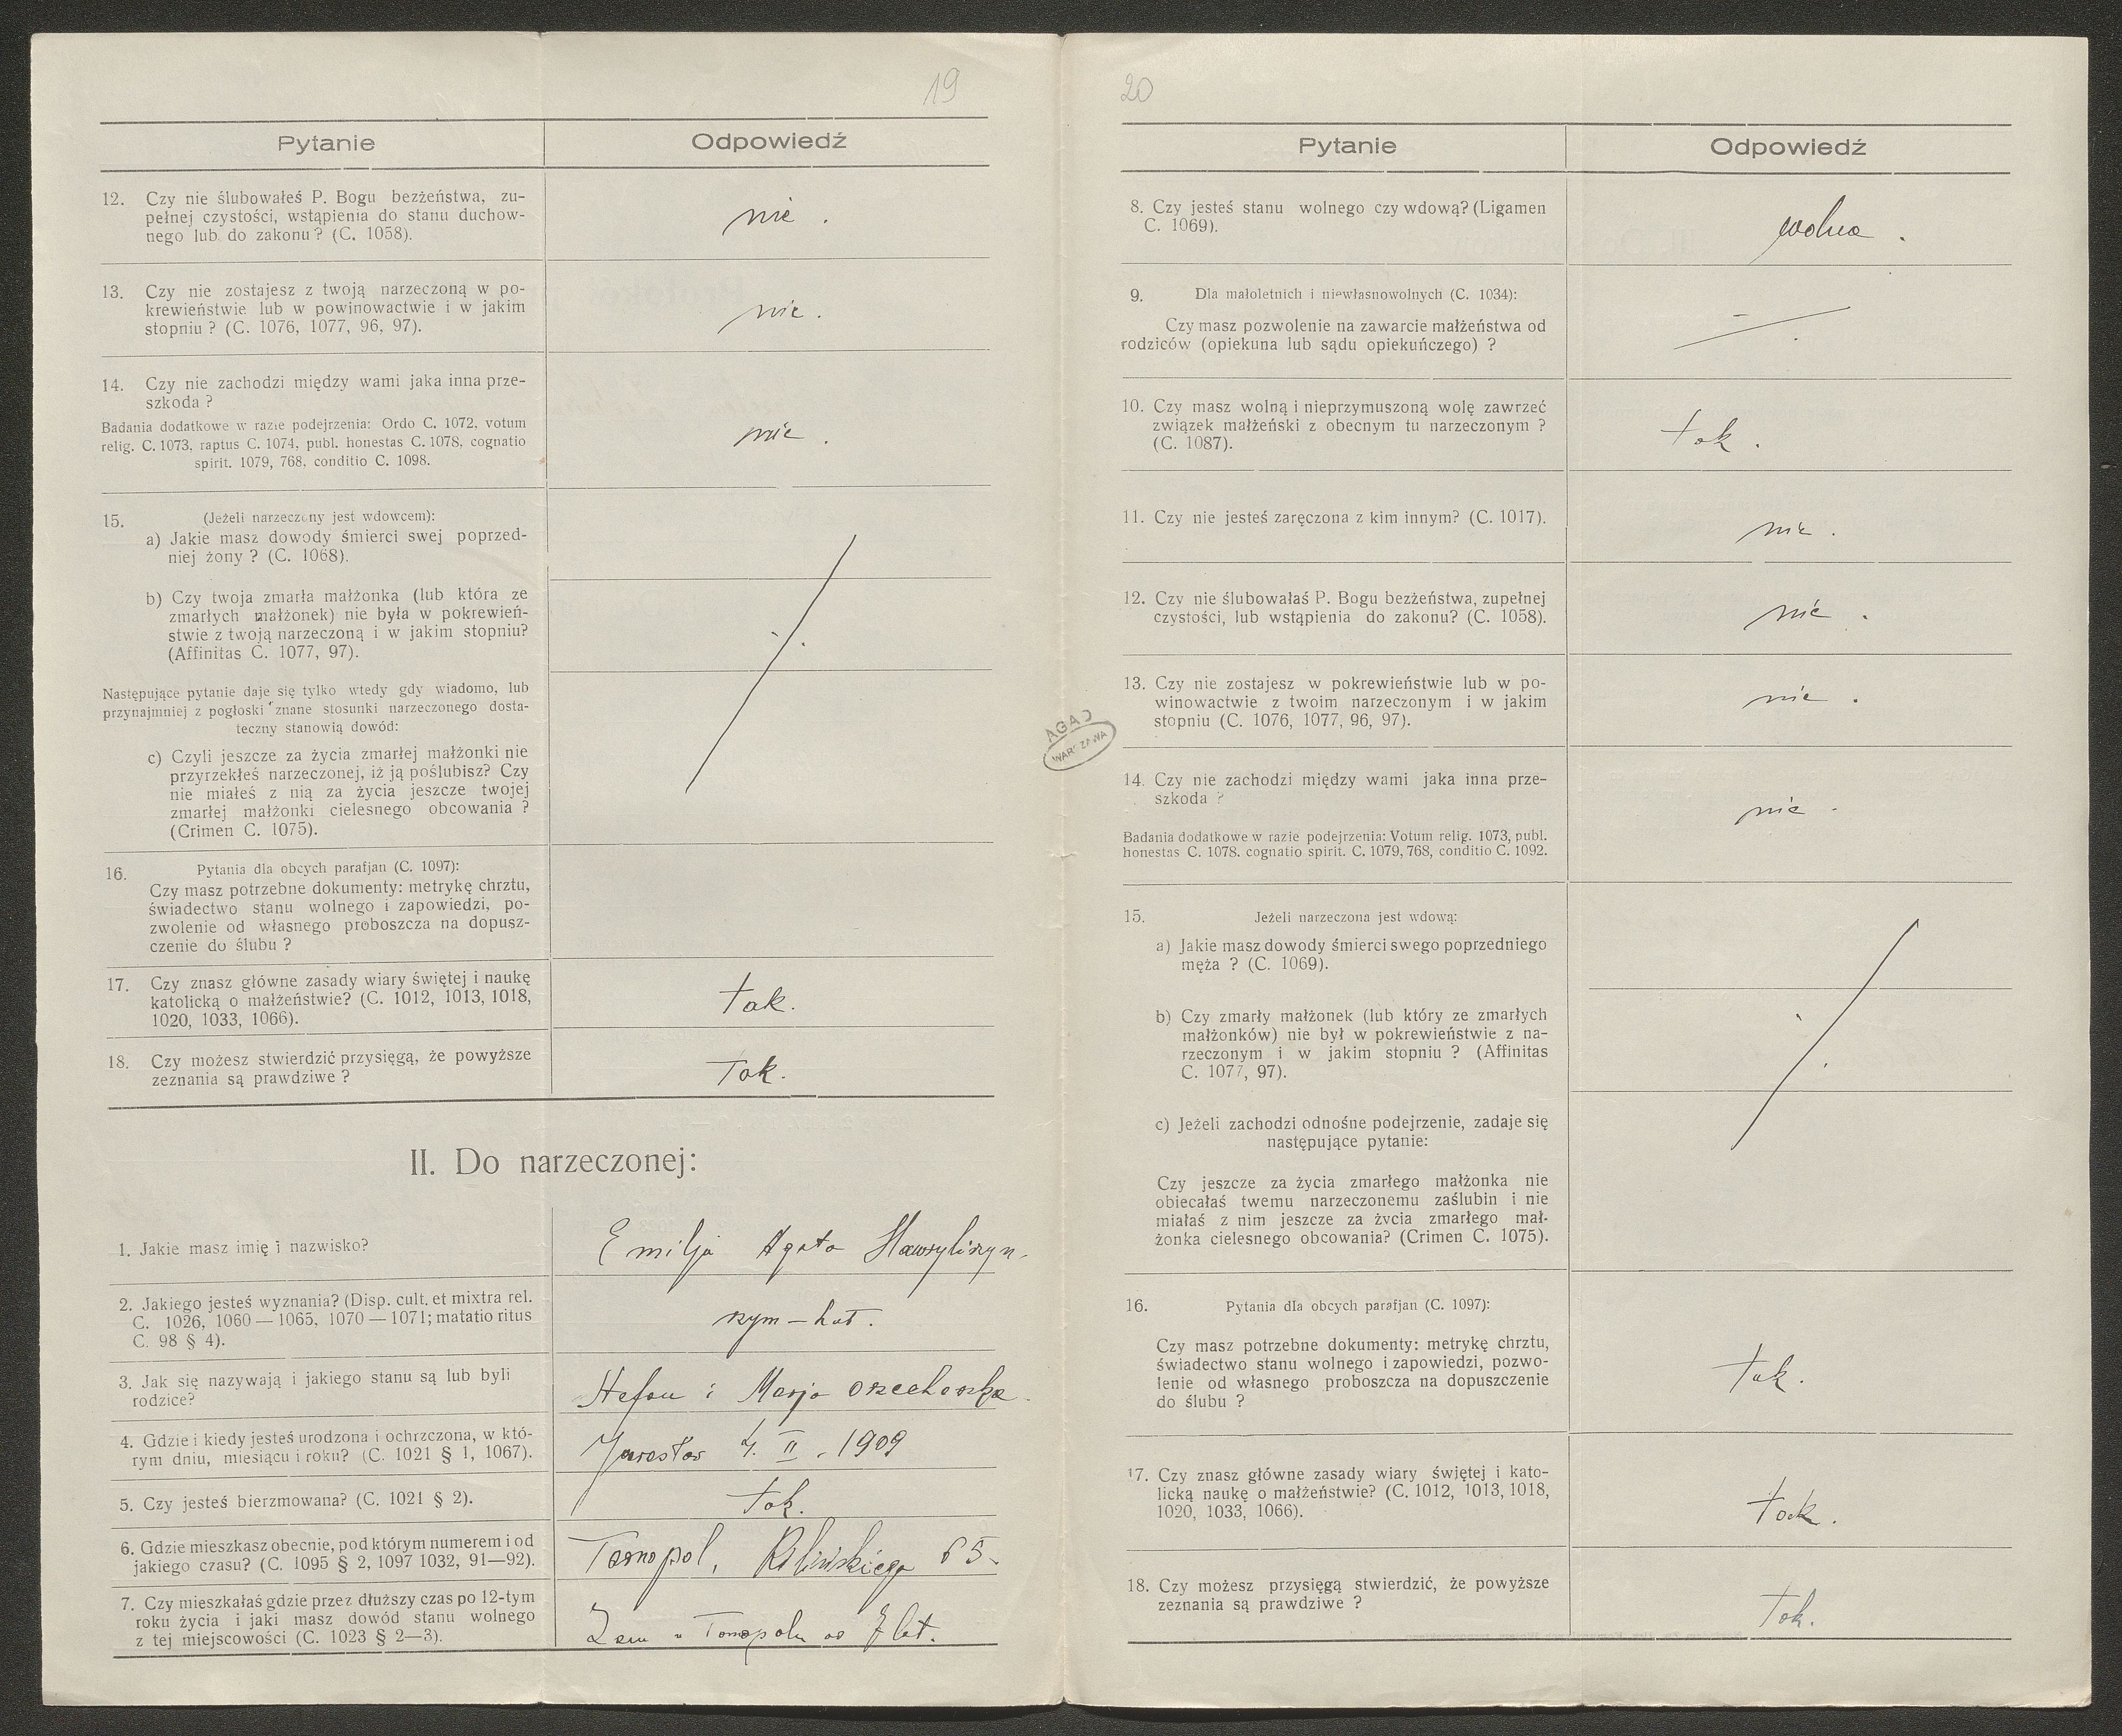 19
Pytanie
Odpowiedź
12. Czy nie ślubowałeś P. Bogu bezżeństwa, zu-
pełnej czystości, wstąpienia do stanu duchow-
nego lub do zakonu? (C. 1058).
nie.
13. Czy nie zostajesz z twoją narzeczoną w po-
krewieństwie lub w powinowactwie i w jakim
stopniu? (C. 1076, 1077, 96, 97).
nie.
14. Czy nie zachodzi między wami jaka inna prze-
szkoda?
Badania dodatkowe w razie podejrzenia: Ordo C. 1072, votum
relig. C. 1073, raptus C. 1074, publ. honestas C. 1078, cognatio
spirit. 1079, 768, conditio C. 1098.
nie.
15. (Jeżeli narzeczony jest wdowcem):
a) Jakie masz dowody śmierci swej poprzed-
niej żony? (C. 1068).
b) Czy twoja zmarła małżonka (lub która ze
zmarłych małżonek) nie była w pokrewień-
stwie z twoją narzeczoną i w jakim stopniu?
(Affinitas C. 1077, 97).
Następujące pytanie daje się tylko wtedy gdy wiadomo, lub
przynajmniej z pogłoski znane stosunki narzeczonego dosta-
teczny stanowią dowód:
c) Czyli jeszcze za życia zmarłej małżonki nie
przyrzekłeś narzeczonej, iż ją poślubisz? Czy
nie miałeś z nią za życia jeszcze twojej
zmarłej małżonki cielesnego obcowania?
(Crimen C. 1075).
16. Pytania dla obcych parafjan (C. 1097):
Czy masz potrzebne dokumenty: metrykę chrztu,
świadectwo stanu wolnego i zapowiedzi, po-
zwolenie od własnego proboszcza na dopusz-
czenie do ślubu?
17. Czy znasz główne zasady wiary świętej i naukę
katolicką o małżeństwie? (C. 1012, 1013, 1018,
1020, 1033, 1066).
tak.
18. Czy możesz stwierdzić przysięgą, że powyższe
zeznania są prawdziwe?
Tak.
II. Do narzeczonej:
1. Jakie masz imię i nazwisko?
Emilja Agata Hawryliszyn.
2. Jakiego jesteś wyznania? (Disp. cult. et mixtra rel.
C. 1026, 1060 — 1065, 1070 — 1071; matatio ritus
C. 98 § 4).
rzym – kat.
3. Jak się nazywają i jakiego stanu są lub byli
rodzice?
Stefan i Marja Orzechowska.
4. Gdzie i kiedy jesteś urodzona i ochrzczona, w któ-
rym dniu, miesiącu i roku? (C. 1021 § 1, 1067).
Jarosław 4. II. 1909
5. Czy jesteś bierzmowana? (C. 1021 § 2).
tak.
6. Gdzie mieszkasz obecnie, pod którym numerem i od
jakiego czasu? (C. 1095 § 2, 1097 1032, 91—92).
Tarnopol, Kilińskiego 65.
7. Czy mieszkałaś gdzie przez dłuższy czas po 12-tym
roku życia i jaki masz dowód stanu wolnego
z tej miejscowości (C. 1023 § 2—3).
w Tarnopolu od lat.
20
Pytanie
Odpowiedź
8. Czy jesteś stanu wolnego czy wdową? (Ligamen
C. 1069).
wolna.
9. Dla małoletnich i niewłasnowolnych (C. 1034):
Czy masz pozwolenie na zawarcie małżeństwa od
rodziców (opiekuna lub sądu opiekuńczego)?
10. Czy masz wolną i nieprzymuszoną wolę zawrzeć
związek małżeński z obecnym tu narzeczonym?
(C. 1087).
tak.
11. Czy nie jesteś zaręczona z kim innym? (C. 1017).
nie.
12. Czy nie ślubowałaś P. Bogu bezżeństwa, zupełnej
czystości, lub wstąpienia do zakonu? (C. 1058).
nie.
13. Czy nie zostajesz w pokrewieństwie lub w po-
winowactwie z twoim narzeczonym i w jakim
stopniu (C. 1076, 1077, 96, 97).
nie.
AGAD
WARSZAWA
14. Czy nie zachodzi między wami jaka inna prze-
szkoda?
Badania dodatkowe w razie podejrzenia: Votum relig. 1073, publ.
honestas C. 1078. cognatio spirit. C. 1079, 768, conditio C. 1092.
nie.
15. Jeżeli narzeczona jest wdową:
a) Jakie masz dowody śmierci swego poprzedniego
męża? (C. 1069).
b) Czy zmarły małżonek (lub który ze zmarłych
małżonków) nie był w pokrewieństwie z na-
rzeczonym i w jakim stopniu? (Affinitas
C. 1077, 97).
c) Jeżeli zachodzi odnośne podejrzenie, zadaje się
następujące pytanie:
Czy jeszcze za życia zmarłego małżonka nie
obiecałaś twemu narzeczonemu zaślubin i nie
miałaś z nim jeszcze za życia zmarłego mał-
żonka cielesnego obcowania? (Crimen C. 1075).
16. Pytania dla obcych parafjan (C. 1097):
Czy masz potrzebne dokumenty: metrykę chrztu,
świadectwo stanu wolnego i zapowiedzi, pozwo-
lenie od własnego proboszcza na dopuszczenie
do ślubu?
tak.
17. Czy znasz główne zasady wiary świętej i kato-
licką naukę o małżeństwie? (C. 1012, 1013, 1018,
1020, 1033, 1066).
tak.
18. Czy możesz przysięgą stwierdzić, że powyższe
zeznania są prawdziwe?
Tak.